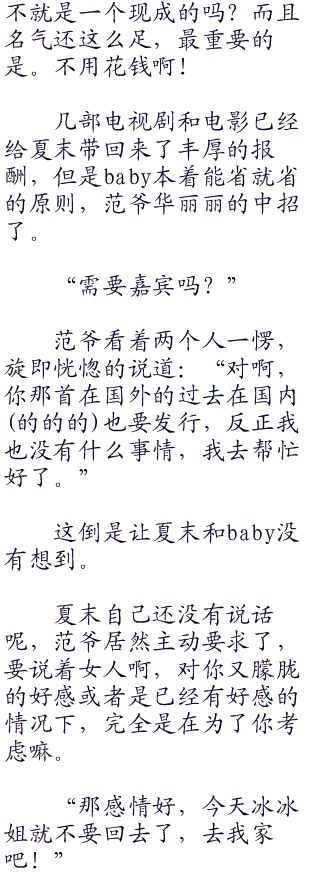 不就是一个现成的吗？而且
名气还这么足，最重要的
是。不用花钱啊！
几部电视剧和电影已经
给夏末带回来了丰厚的报
酬，但是baby本着能省就省
的原则，范爷华丽丽的中招
了。
“需要嘉宾吗？”
范爷看着两个人一愣，
旋即恍惚的说道：“对啊，
你那首在国外的过去在国内
(的的的)也要发行，反正我
也没有什么事情，我去帮忙
好了。”
这倒是让夏末和baby没
有想到。
夏末自己还没有说话
呢，范爷居然主动要求了，
要说着女人啊，对你又朦胧
的好感或者是已经有好感的
情况下，完全是在为了你考
虑嘛。
“那感情好，今天冰冰
姐就不要回去了，去我家
吧！”